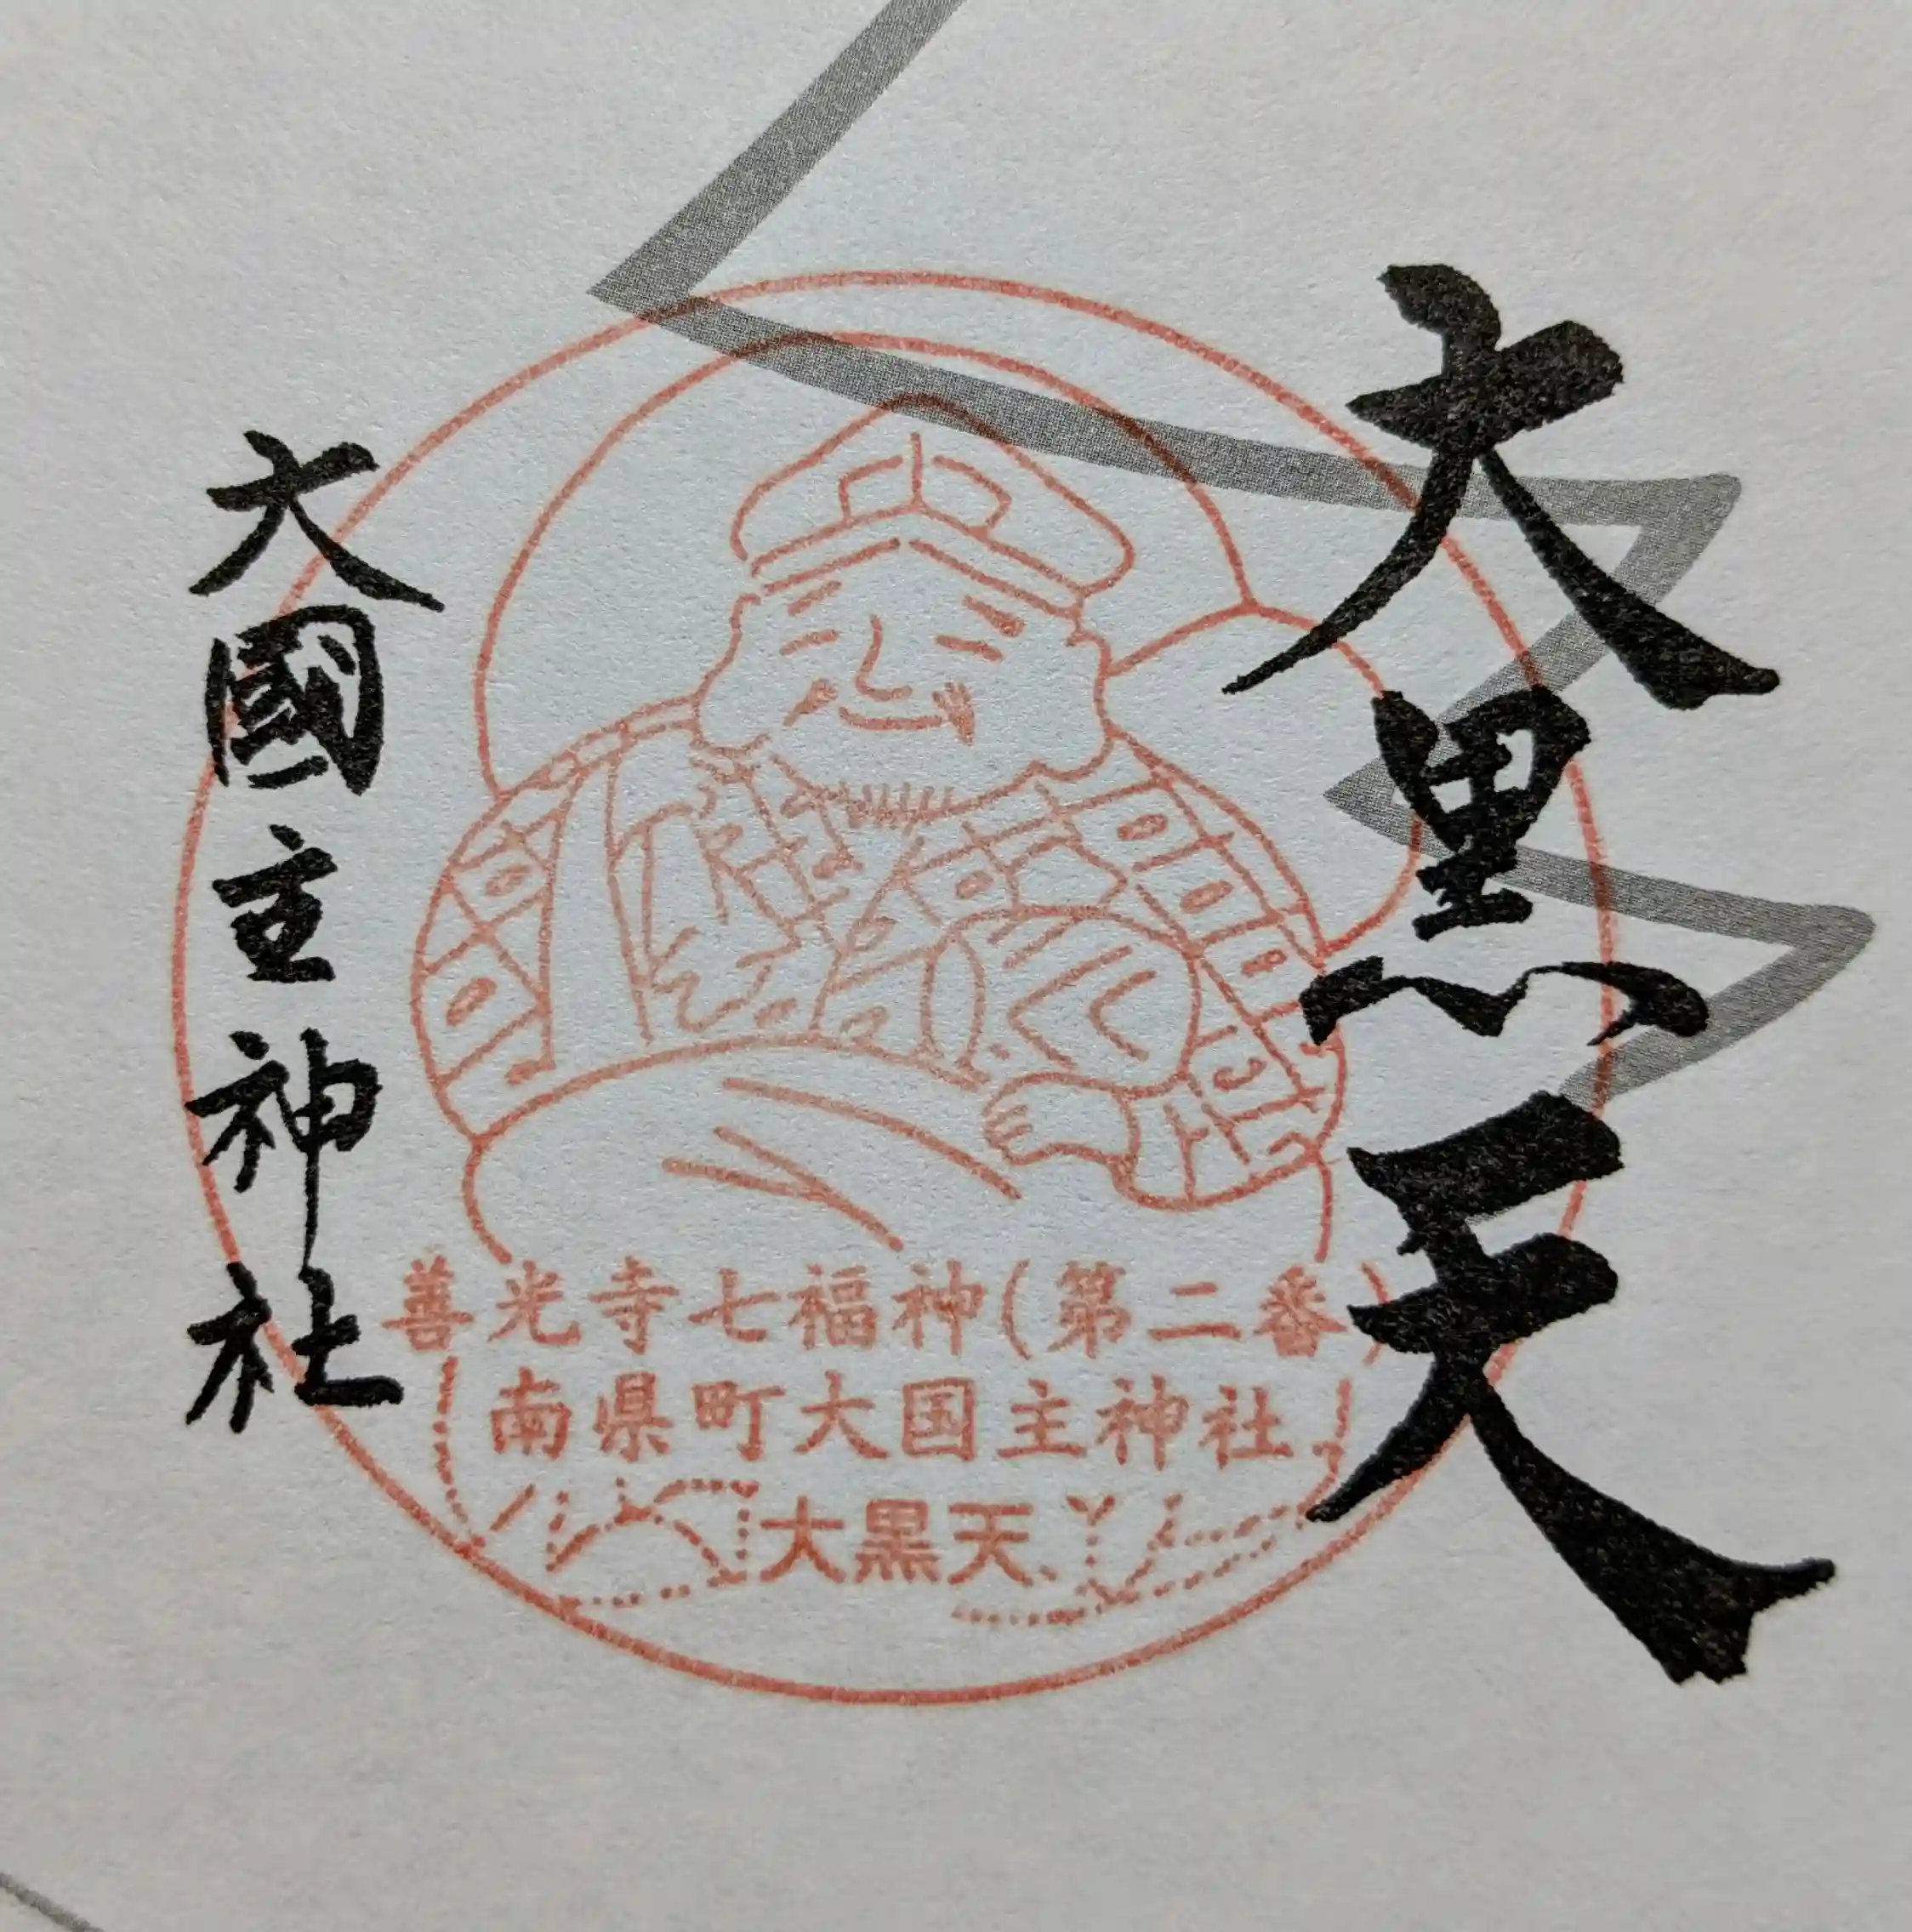 大黒天
善光寺七福神(第二番)
南県町大国主神社
大黒天
大國主神社